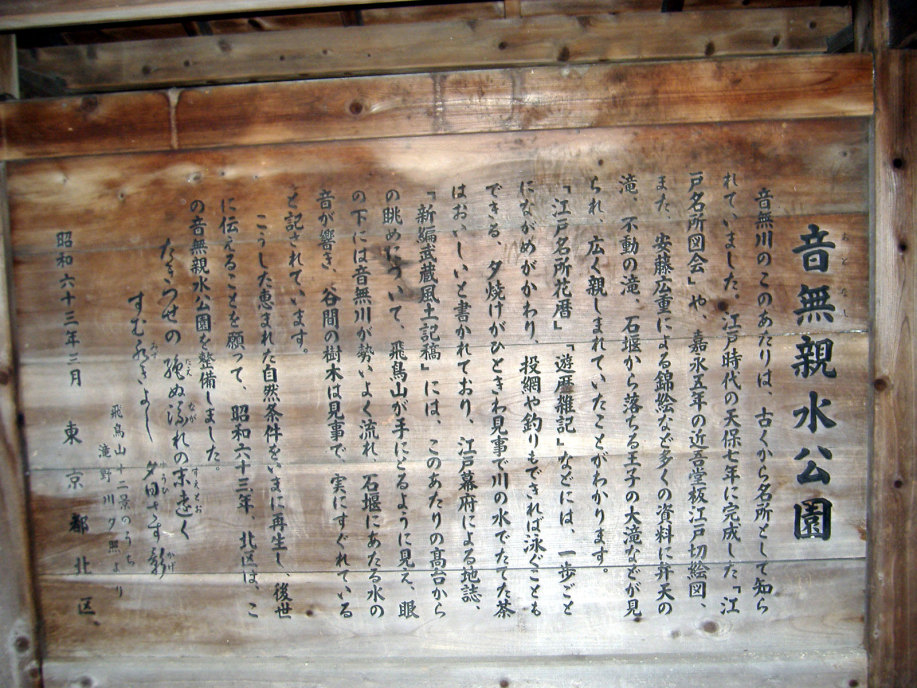 音無親水公園
おとなし
音無川のこのあたりは、古くから名所として知ら
れていました。江戸時代の天保七年に完成した『江
戸名所図会』や、嘉永五年の近吾堂板江戸切絵図、
また、安藤広重による錦絵など多くの資料に弁天の
滝、不動の滝、石堰から落ちる王子の大滝などが見
られ、広く親しまれていたことがわかります。
『江戸名所花暦』『遊歴雑記』などには、一歩ごと
にながめがかわり、投網や釣りもできれば泳ぐことも
できる、夕焼けがひときわ見事で川の水でたてた茶
はおいしいと書かれており、江戸幕府による地誌、
『新編武蔵風土記稿』には、このあたりの高台から
の眺めについて、飛鳥山が手にとるように見え、眼
の下には音無川が勢いよく流れ、石堰にあたる水の
音が響き、谷間の樹木は見事で、実にすぐれている
と記されています。
こうした恵まれた自然条件をいまに再生し、後世
に伝えることを願って、昭和六十三年、北区は、こ
の音無親水公園を整備しました。
たきつせの 絶ぬ流れの末遠く
すむ水きよし 夕日さす影
飛鳥山十二景のうち
滝野川夕照より
昭和六十三年三月 東京都北区